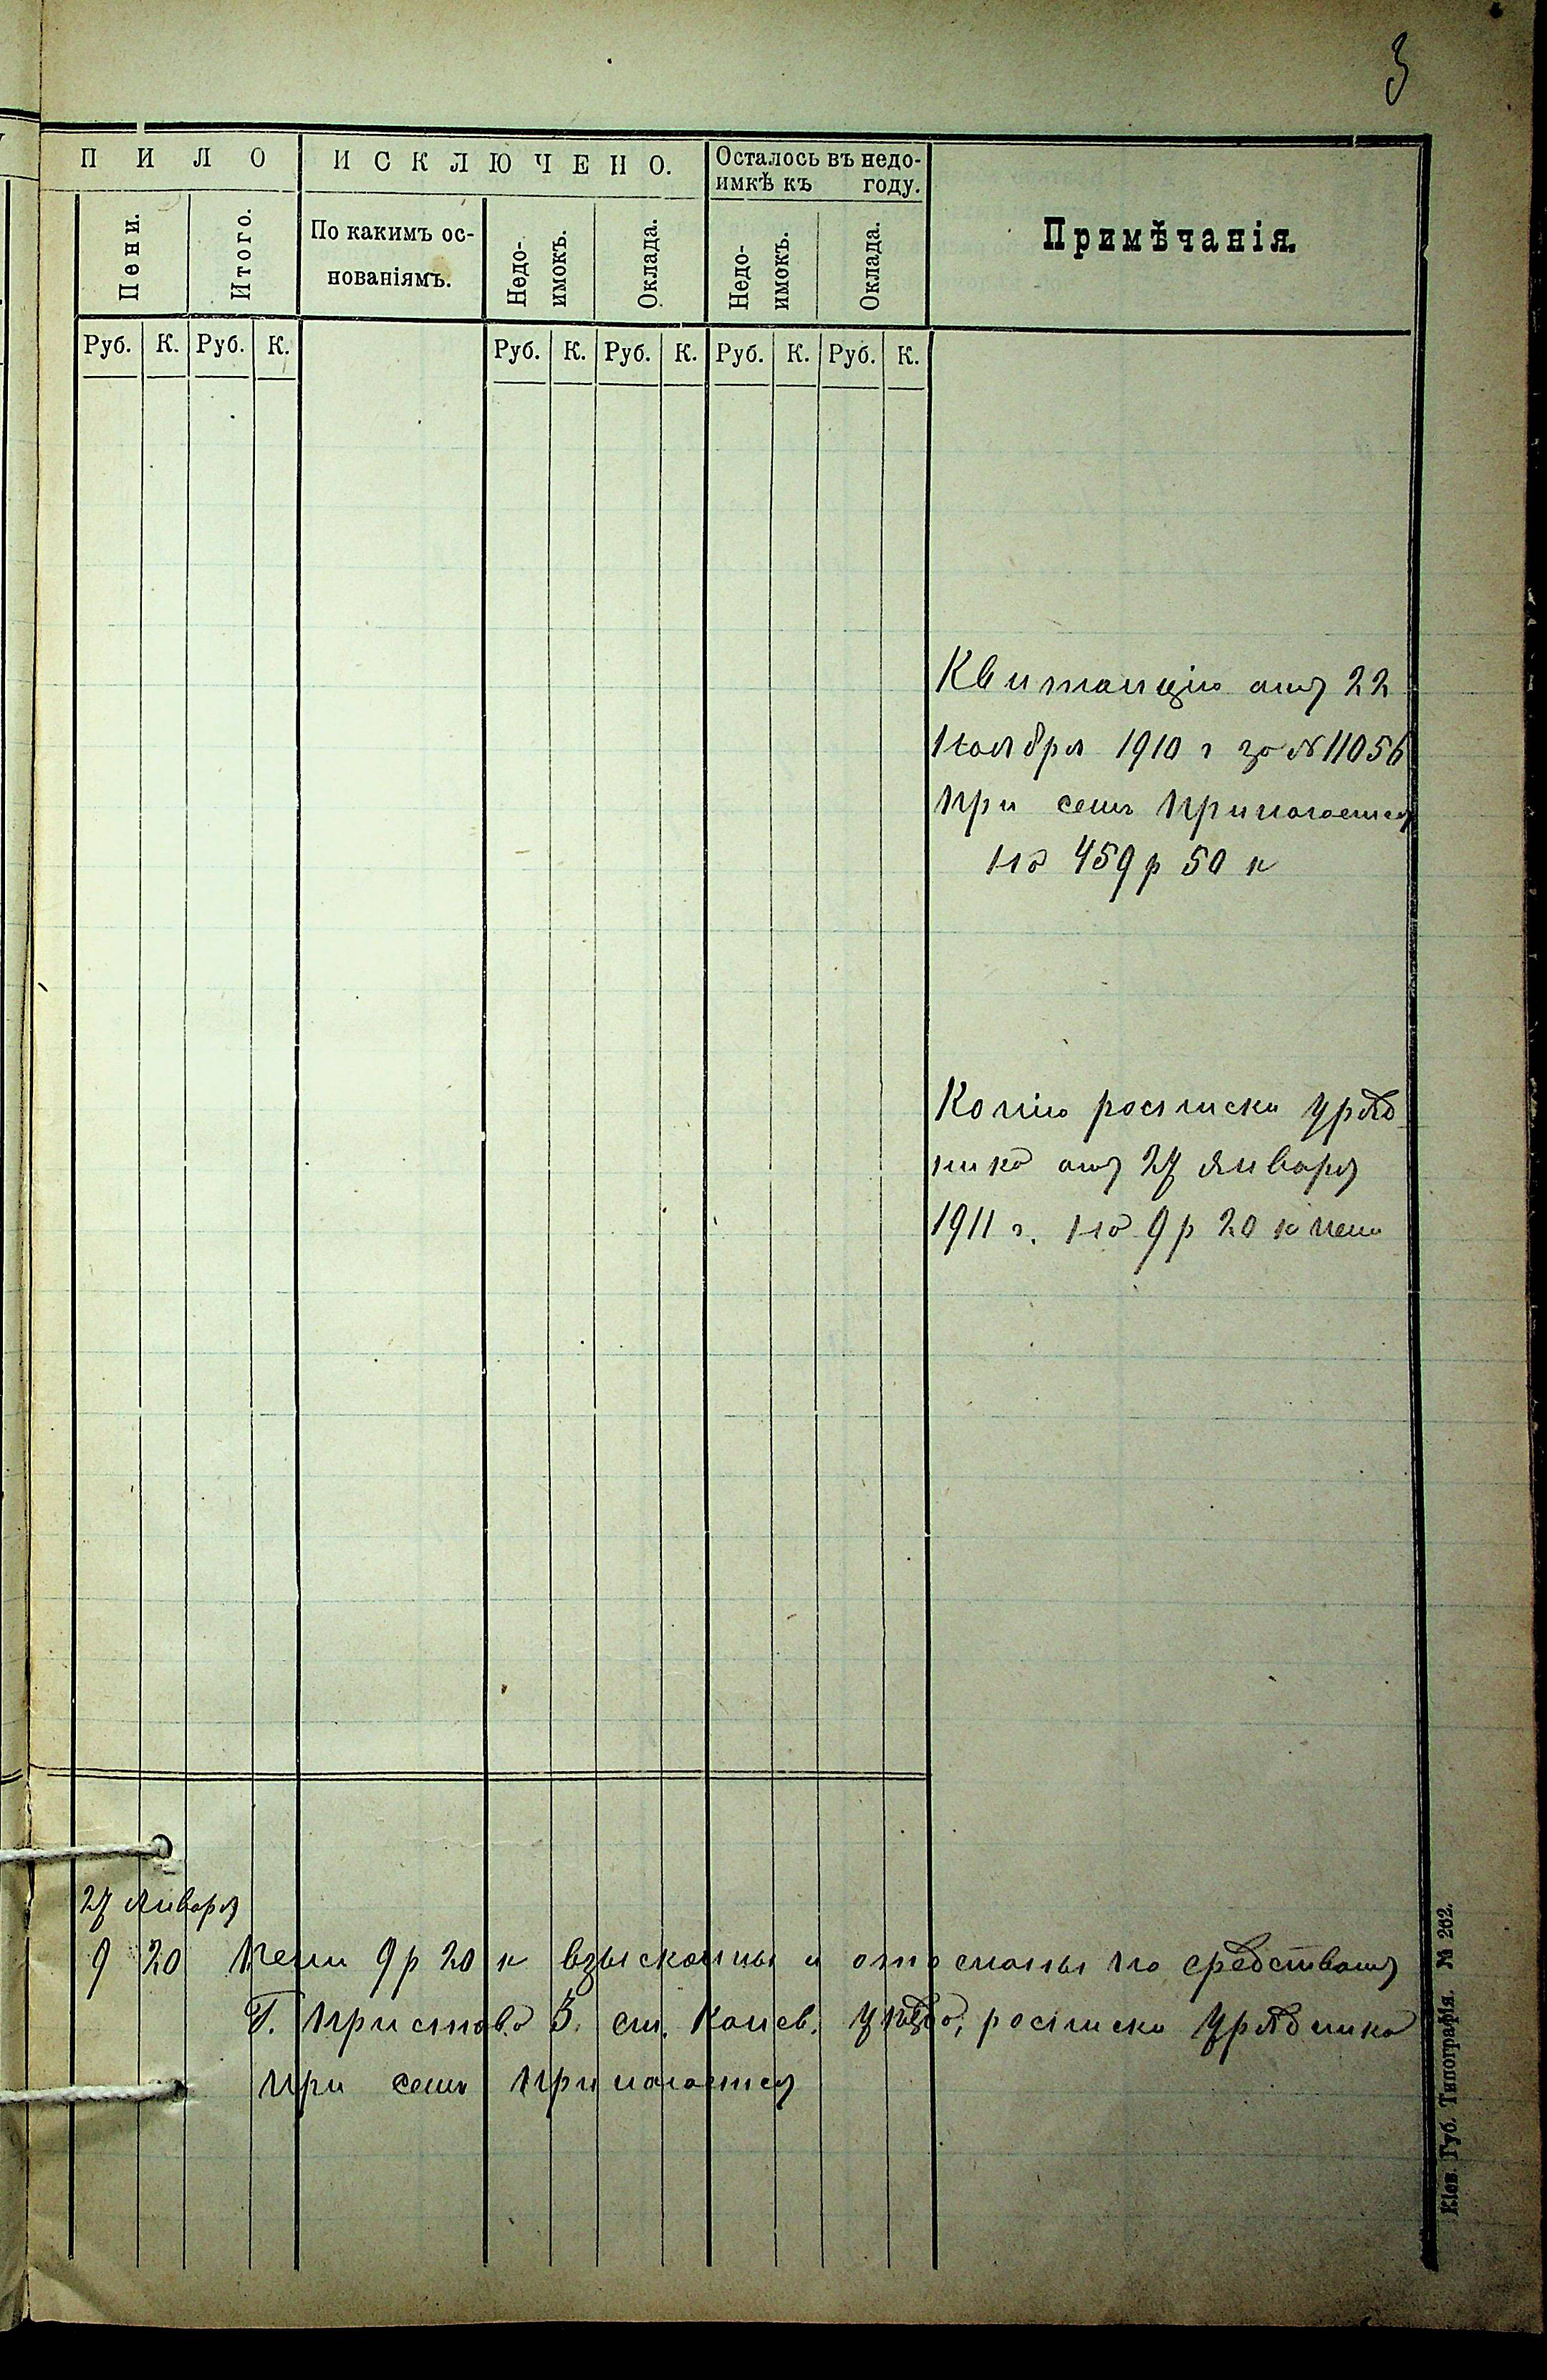 3
ПИЛО
ИСКЛЮЧЕНО.
Осталось въ недо-
имкѣ къ году.
Примѣчанія.
Пени.
Итого.
По какимъ ос-
нованіямъ.
Недо-
имокъ.
Оклада.
Недо-
имокъ.
Оклада.
Руб. К. Руб. К. Руб. К. Руб. К. Руб. К. Руб. К.
Квитанцію отъ 22
Ноября 1910 г за № 11056
при семъ прилагается
на 459 р 50 к
Копію росписки уряд
ника отъ 27 Января
1911 г. на 9 р 20 к пени
27 Января
9 20 Пени 9 р 20 к взысканы и отосланы по средствомъ
Г. Пристава 3. ст. Канев. уѣзда, росписка урядника
при семъ прилагается
Кіев. Губ. Типографія. № 262.